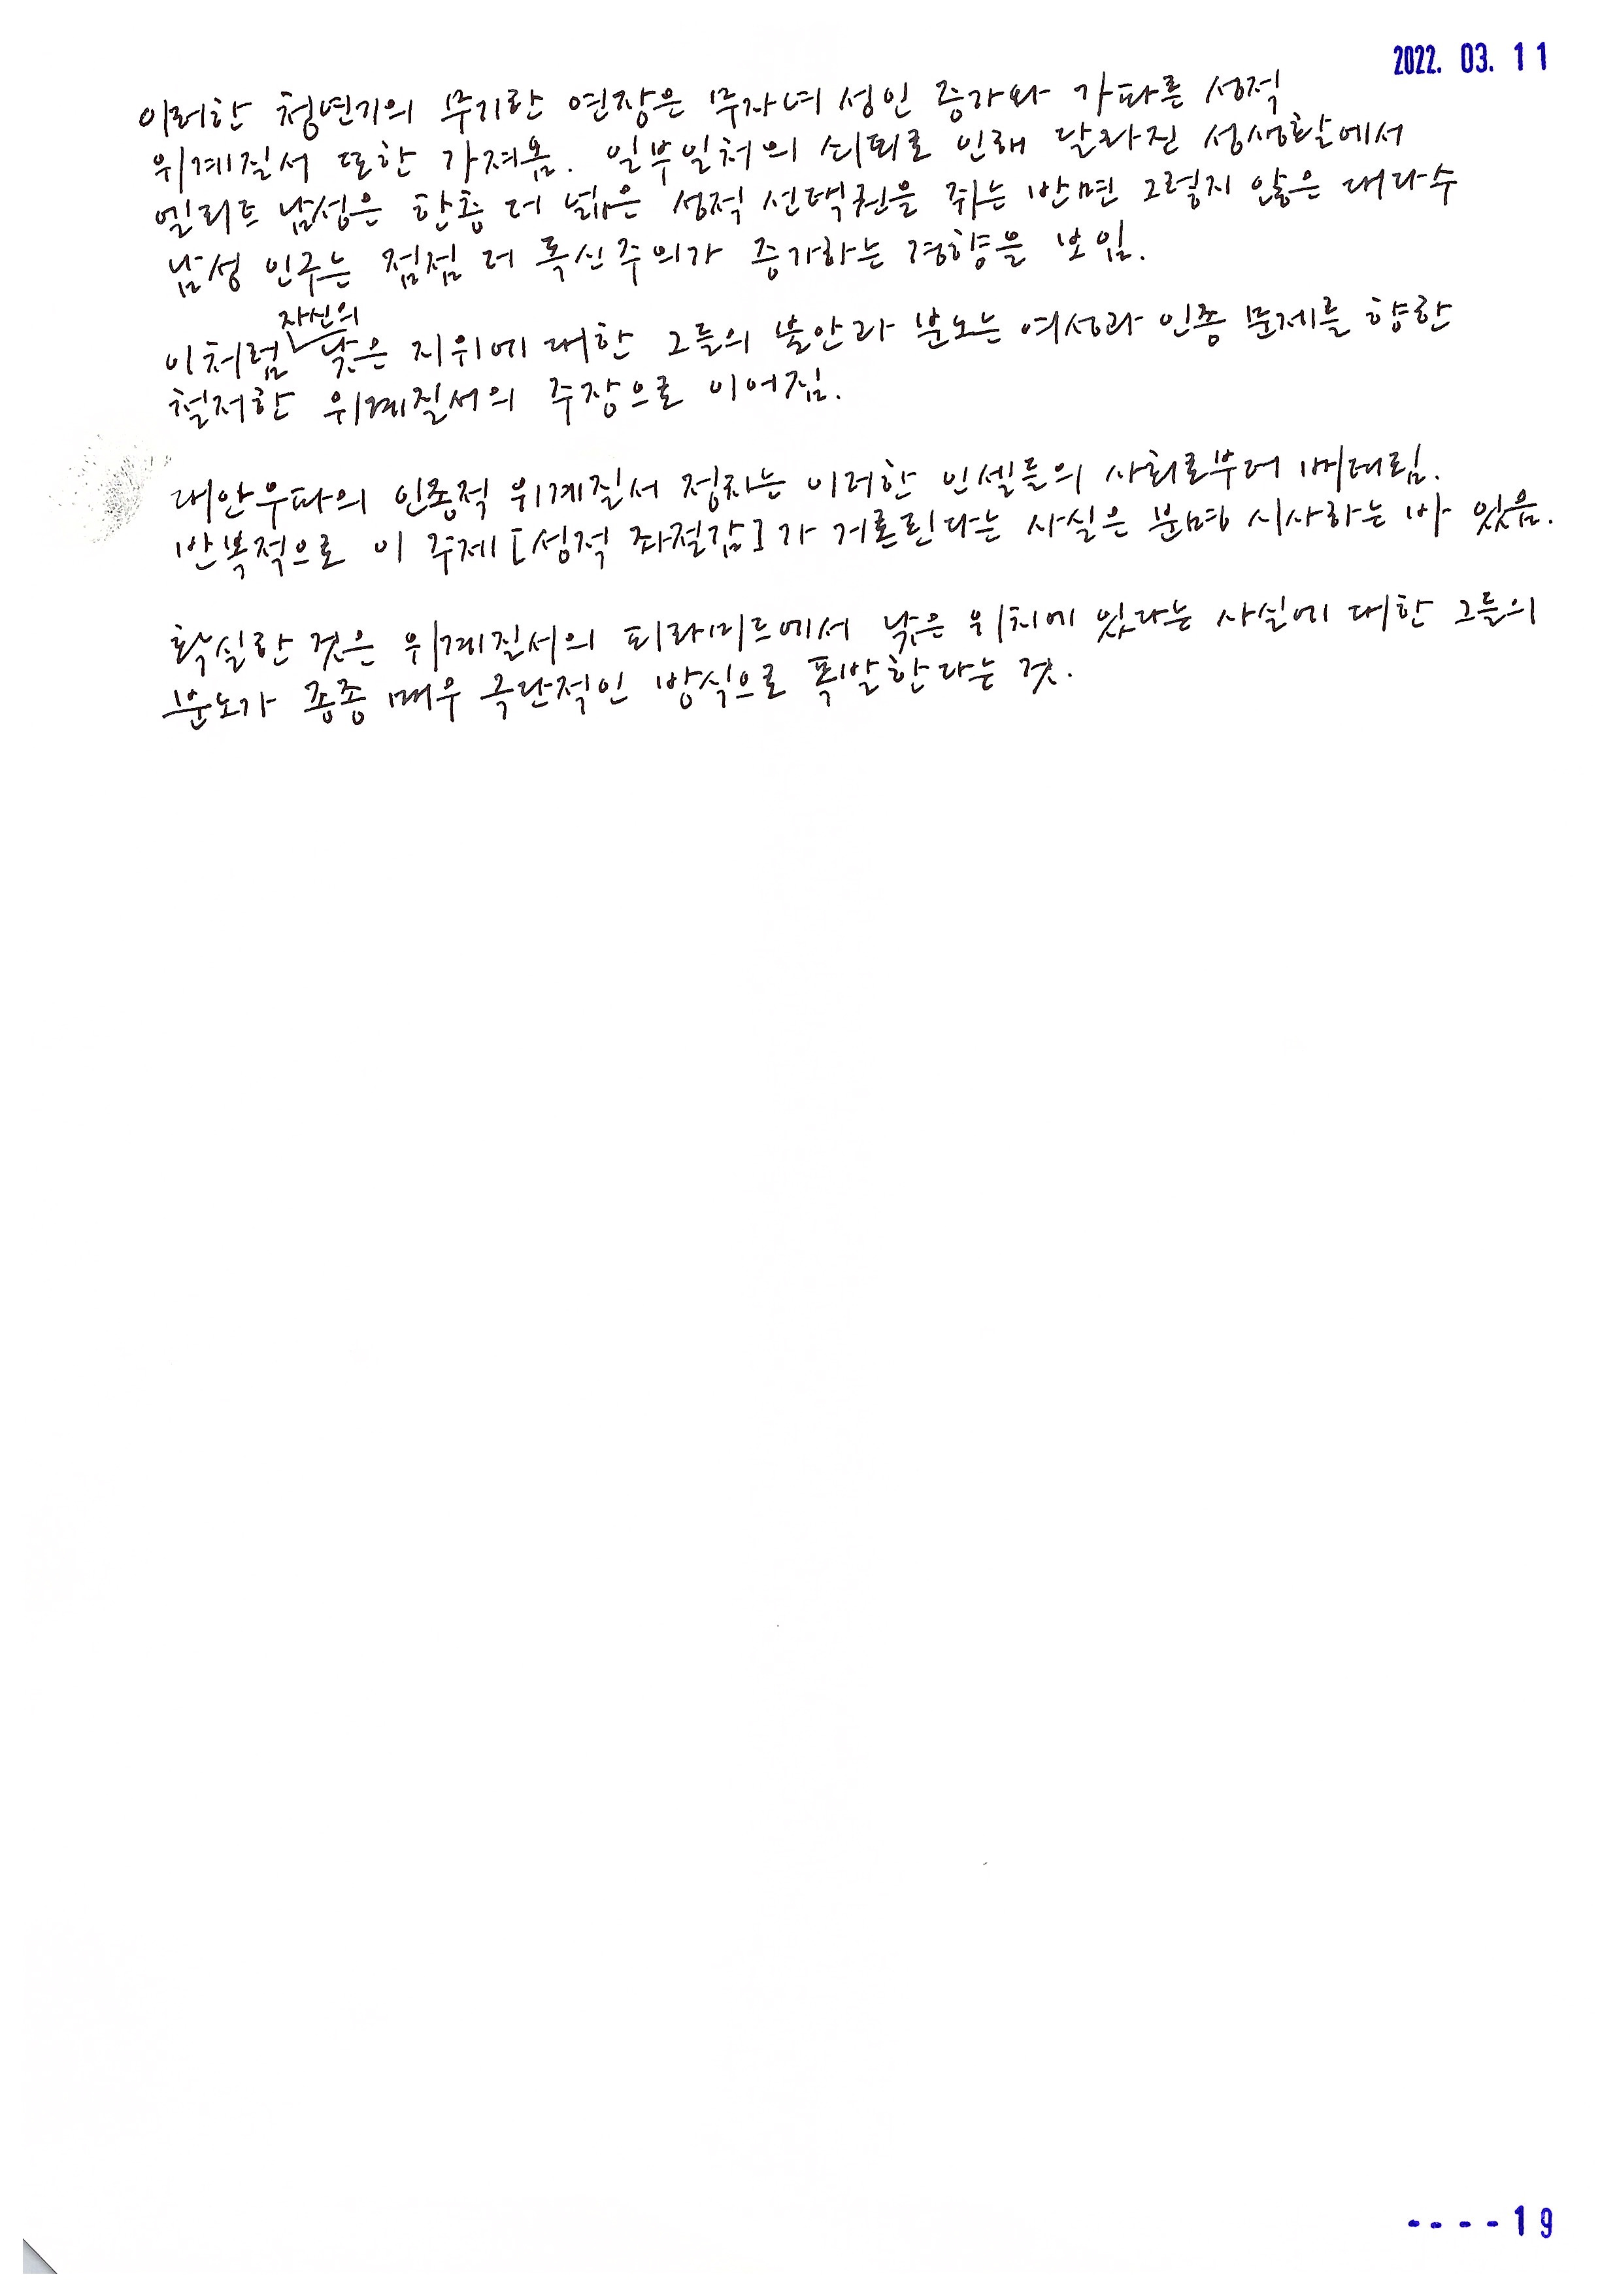 2022. 03. 11
이러한 청년기의 무기한 연장은 무자녀 성인 증가와 가파른 성적
위계질서 또한 가져옴. 일부일처의 쇠퇴로 인해 달라진 성생활에서
엘리트 남성은 한층 더 넓은 성적 선택권을 쥐는 반면 그렇지 않은 대다수
남성 인구는 점점 더 독신주의가 증가하는 경향을 보임.
자신의
이처럼 낮은 지위에 대한 그들의 불안과 분노는 여성과 인종 문제를 향한
철저한 위계질서의 주장으로 이어짐.
대안우파의 인종적 위계질서 정치는 이러한 인셀들의 사회로부터
반복적으로 이 주제[성적 좌절감]가 거론된다는 사실은 분명 시사하는 바 있음.
확실한 것은 위계질서의 피라미드에서 낮은 위치에 있다는 사실에 대한 그들의
분노가 종종 매우 극단적인 방식으로 폭발한다는 것.
----19